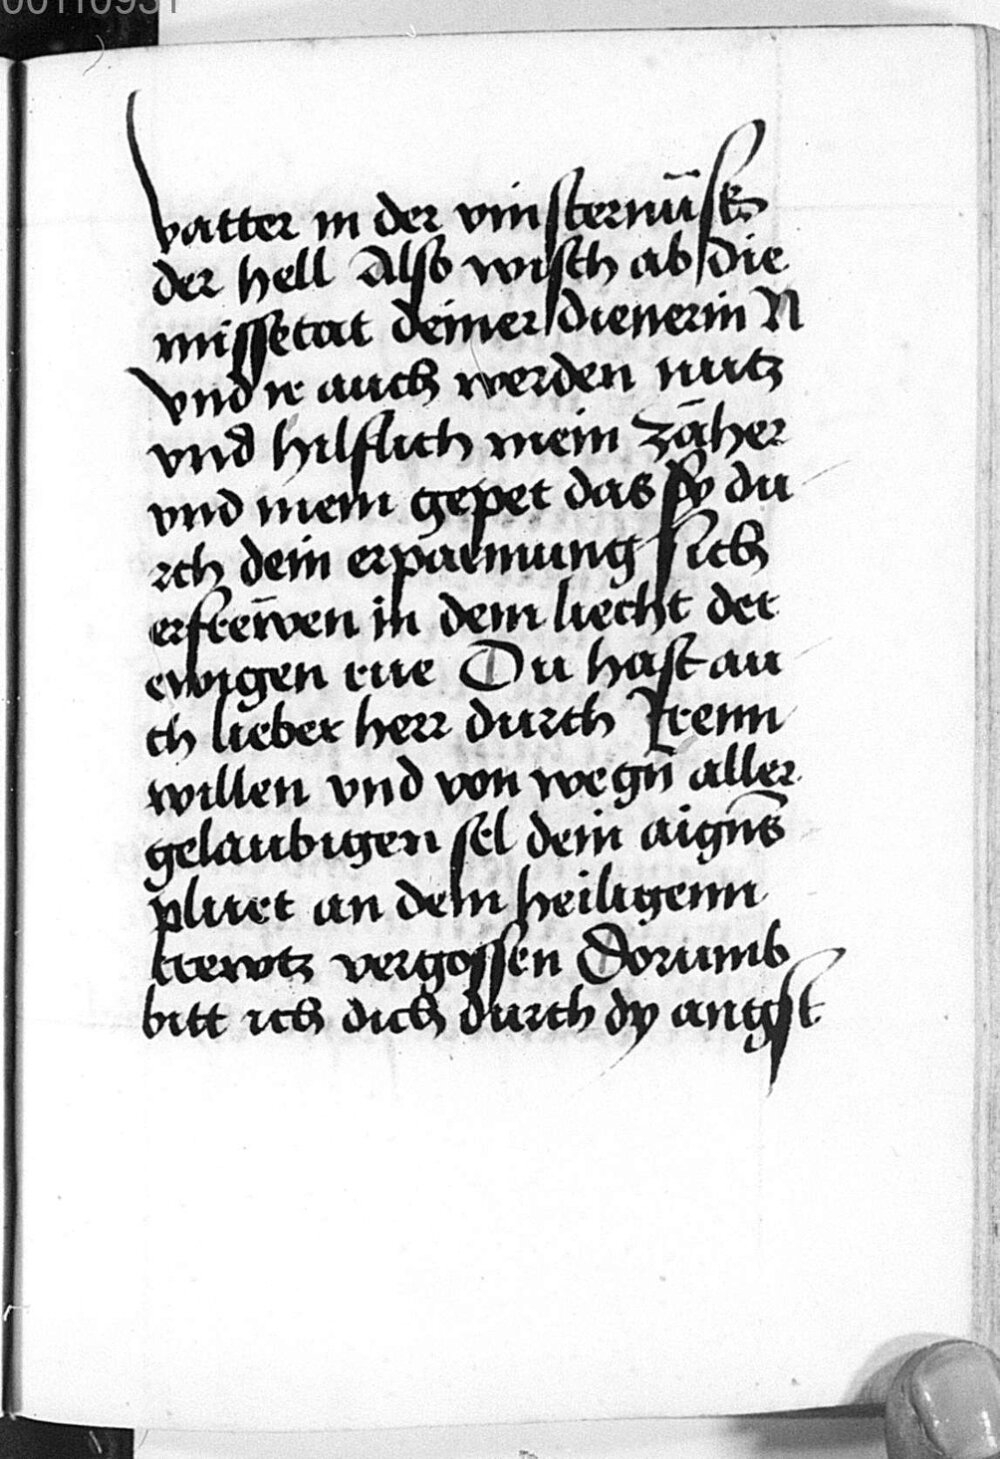 00110931
vatter in der vinsternūsz
der hell Also wisch ab die
missetat deiner dienerin N
vnd ir auch werden nutz
vnd hilflich mein zäher
vnd mein gepet das sy du
rch dein erparmung sich
erfrewen in dem liecht der
ewigen rue Du hast au
ch lieber herr durch Irenn
willen vnd von wegn aller
gelaubigen sel dein aigns
pluet an dem heiligenn
krewtz vergossen Dorumb
bitt ich dich durch dy angst